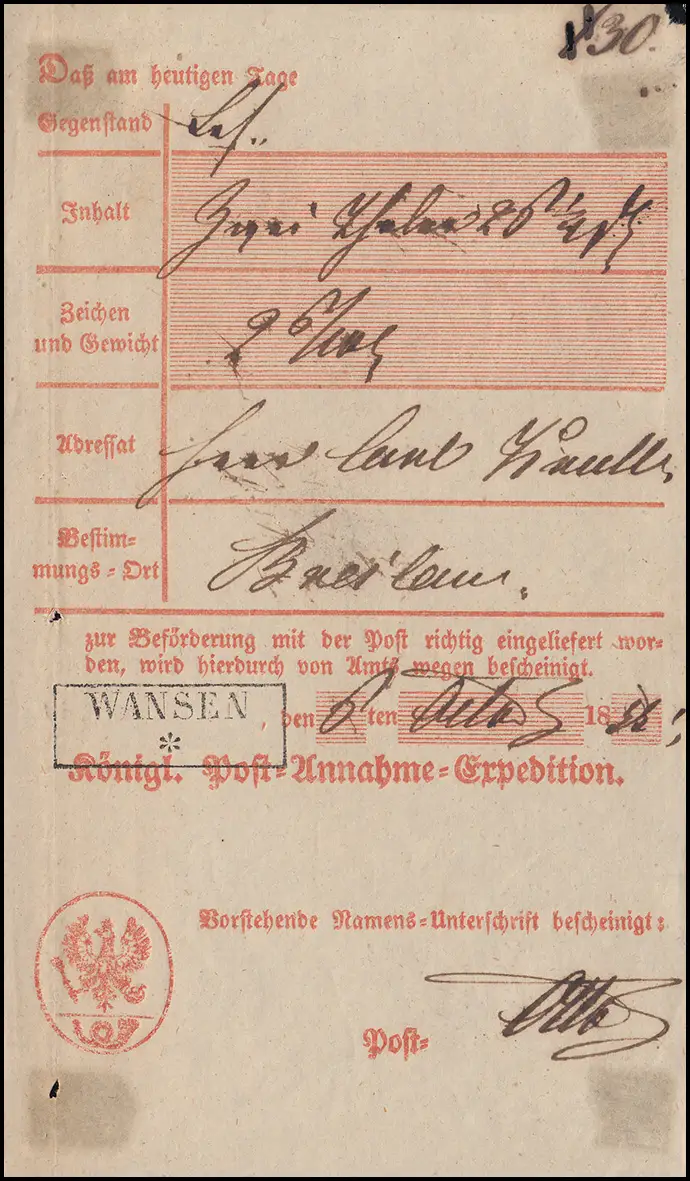 30.
Daß am heutigen Tage
Gegenstand
Inhalt Zwei Thaler
Zeichen
und Gewicht
Adressat Herr Carl
Bestim=
mungs=Ort Breslau.
zur Beförderung mit der Post richtig eingeliefert wor=
den, wird hierdurch von Amts wegen bescheinigt.
WANSEN
*
, den 6 ten Octob 18
Königl. Post=Annahme=Expedition.
Vorstehende Namens=Unterschrift bescheinigt:
Post=